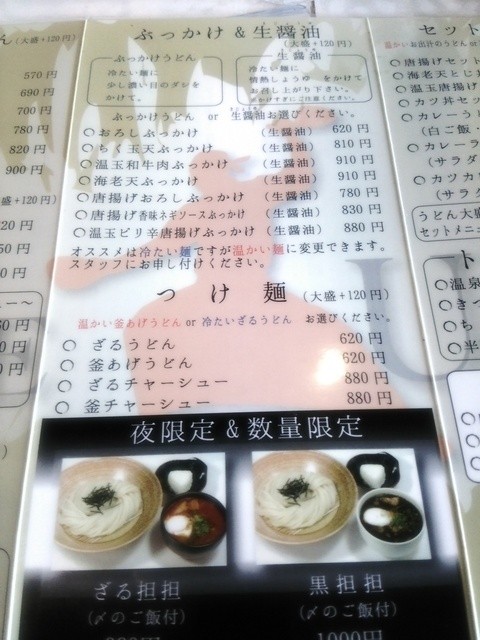 ん (大盛+120円)
570 円
690 円
700 円
780 円
820 円
900 円
盛+120円)
ぶっかけ & 生醤油
(大盛+120円)
ぶっかけうどん
冷たい麺に
少し濃い目のダシを
かけて。
生 醤 油
冷たい麺に
情熱しょうゆ をかけて
お召し上がり下さい。
※かけすぎにご注意ください。
ぶっかけうどん or 生醤油お選びください。
○おろしぶっかけ (生醤油) 620 円
○ちく玉天ぶっかけ (生醤油) 810 円
○温玉和牛肉ぶっかけ (生醤油) 910 円
○海老天ぶっかけ (生醤油) 910 円
○唐揚げおろしぶっかけ (生醤油) 780 円
○唐揚げ香味ネギソースぶっかけ (生醤油) 830 円
○温玉ピリ辛唐揚げぶっかけ (生醤油) 880 円
オススメは冷たい麺ですが温かい麺に変更できます。
スタッフにお申し付けください。
つ け 麺 (大盛+120円)
温かい釜あげうどん or 冷たいざるうどん お選びください。
○ ざるうどん 620 円
○ 釜あげうどん 620 円
○ ざるチャーシュー 880 円
○ 釜チャーシュー 880 円
夜限定&数量限定
ざる担担
(〆のご飯付)
黒担担
(〆のご飯付)
1000円
セット
温かいお出汁のうどん or
○唐揚げセット
○海老天とじ
○温玉唐揚げ
○カツ丼セッ
○カレーう
(白ご飯・
○カレーラ
(サラダ
○カツカ
(サラダ
うどん大盛
セットメニュ
○温泉
○きつ
○ち
○半